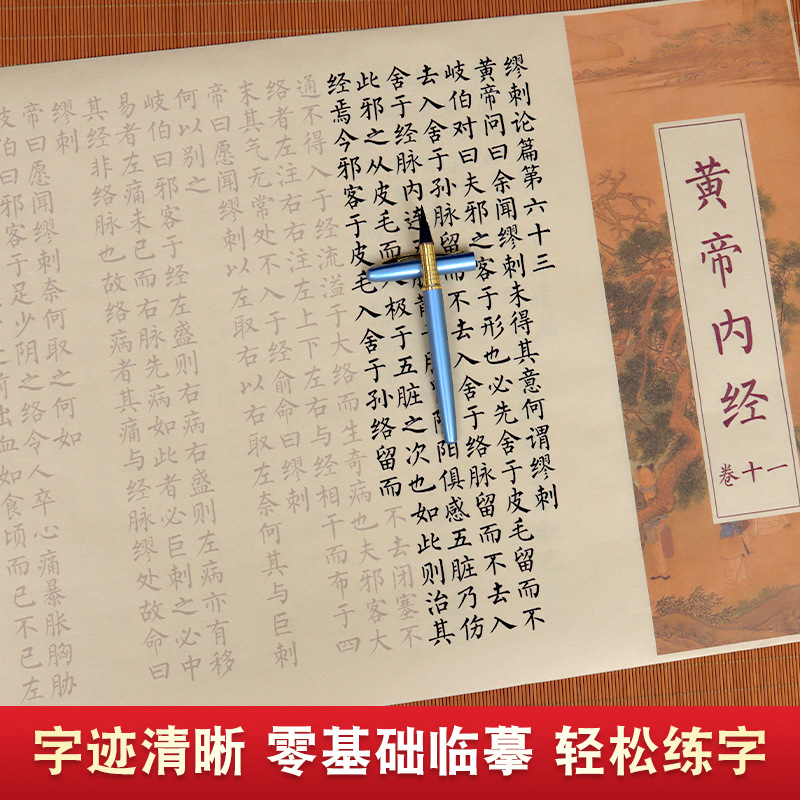 黄帝内经
卷十一
缪刺论篇第六十三
黄帝问曰余闻缪刺未得其意何谓缪刺
岐伯对曰夫邪之客于形也必先舍于皮毛留而不
去入舍于孙脉留而不去入舍于络脉留而不去入
舍于经脉内连阳俱感五脏乃伤
此邪之从皮毛而入极于五脏之次也如此则治其
经焉今邪客于皮毛入舍于孙络留而不去闭塞不
通不得入于经流溢于大络而生奇病也夫邪客大
络者左注右右注左上下左右与经相干而布于四
末其气无常处不入于经俞命曰缪刺
帝曰愿闻缪刺以左取右以右取左奈何其与巨刺
何以别之
岐伯曰邪客于经左盛则右病右盛则左病亦有移
易者左痛未已而右脉先病如此者必巨刺之必中
其经非络脉也故络病者其痛与经脉缪处故命曰
缪刺
帝曰愿闻缪刺奈何取之何如
岐伯曰邪客于足少阴之络令人卒心痛暴胀胸胁
前出血如食顷而已不已左
字迹清晰 零基础临摹 轻松练字